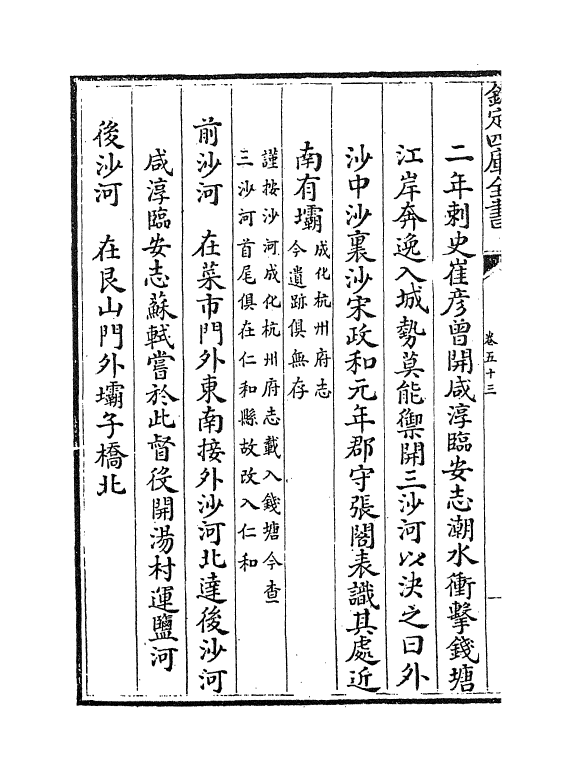 欽定四庫全書
卷五十三
二年刺史崔彦曾開咸淳臨安志潮水衝擊錢塘
江岸奔逸入城勢莫能禦開三沙河以决之曰外
沙中沙裏沙宋政和元年郡守張閣表識其處近
南有壩成化杭州府志
今遺跡俱無存
謹按沙河成化杭州府志載入錢塘今查
三沙河首尾俱在仁和縣故改入仁和
前沙河　在菜市門外東南接外沙河北達後沙河
咸淳臨安志蘇軾嘗於此督役開湯村運鹽河
後沙河　在艮山門外壩子橋北